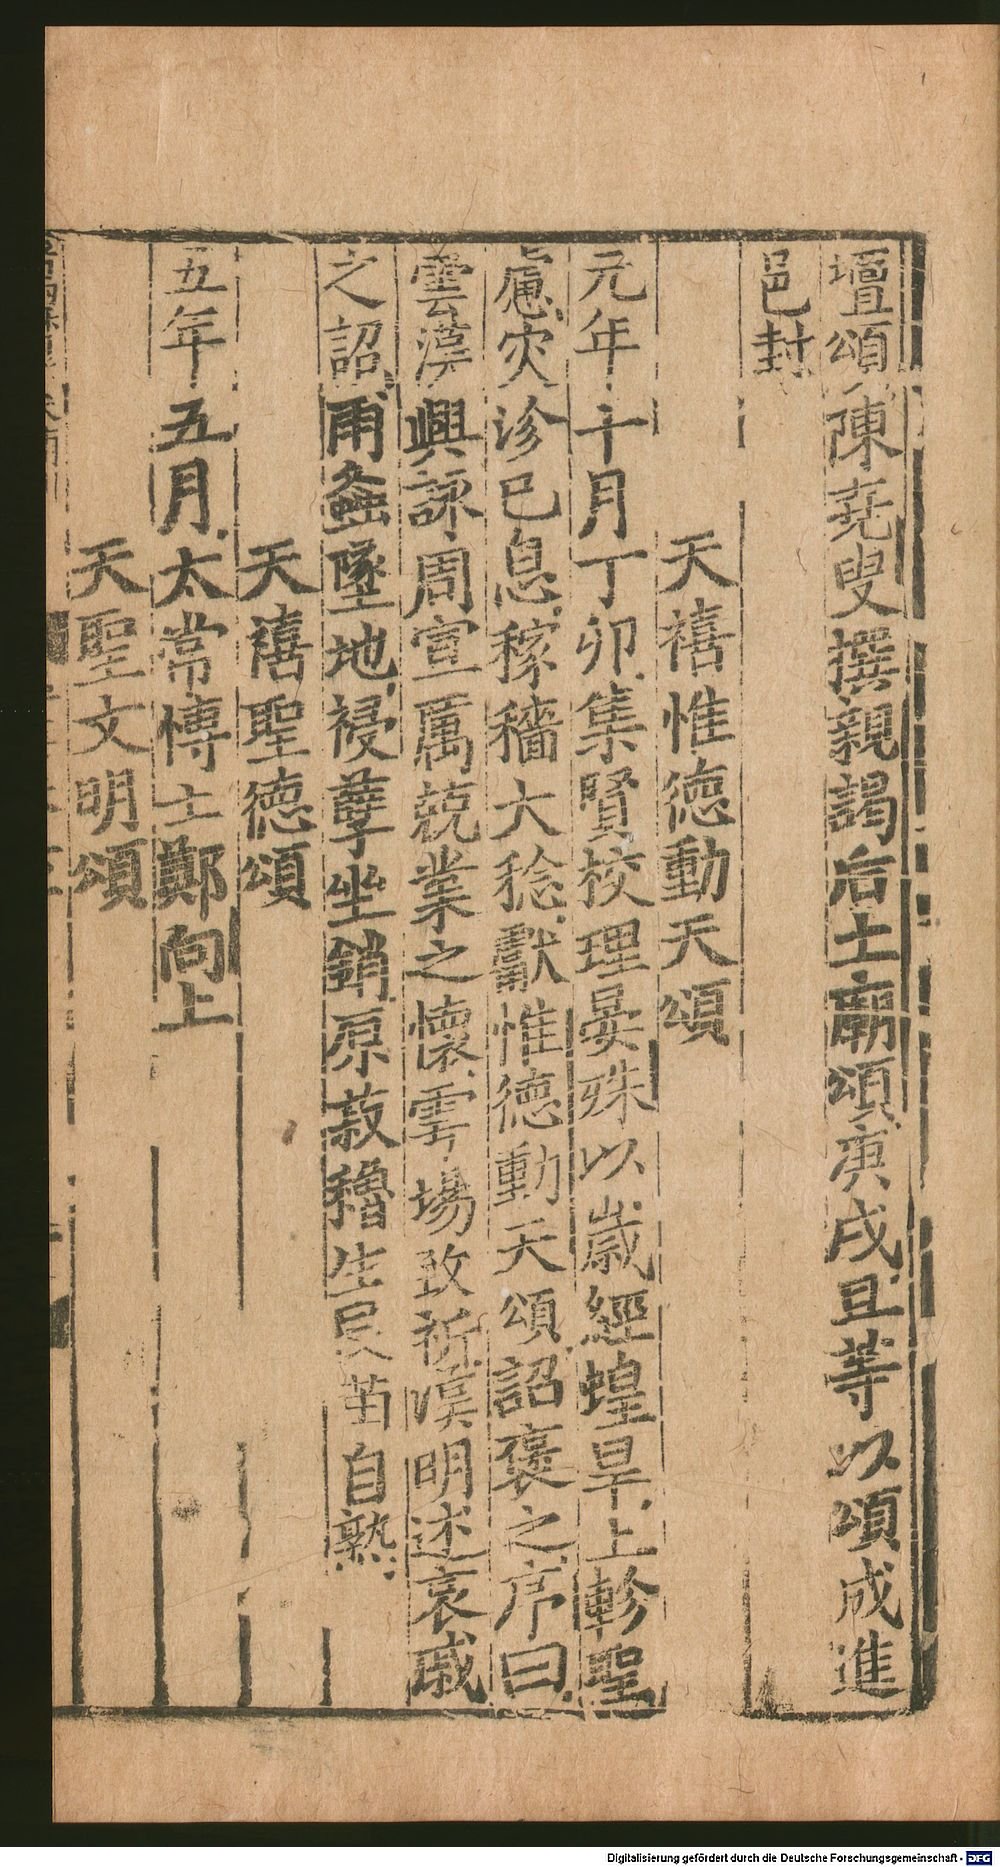 壇頌陳堯叟撰親謁后土廟頌庚戌旦等以頌成進
邑封
天禧惟德動天頌
元年十月丁卯集賢校理晏殊以歲經蝗旱上軫聖
慮灾沴已息稼穡大稔獻惟德動天頌詔褒之序曰
雲漢興詠周宣厲兢業之懷雩場致祈漢明述哀戚
之詔雨螽墜地祲孽坐銷原菽穭生民苗自熟
天禧聖德頌
五年五月太常博士鄭向上
天聖文明頌
Digitalisierung gefördert durch die Deutsche Forschungsgemeinschaft - DFG